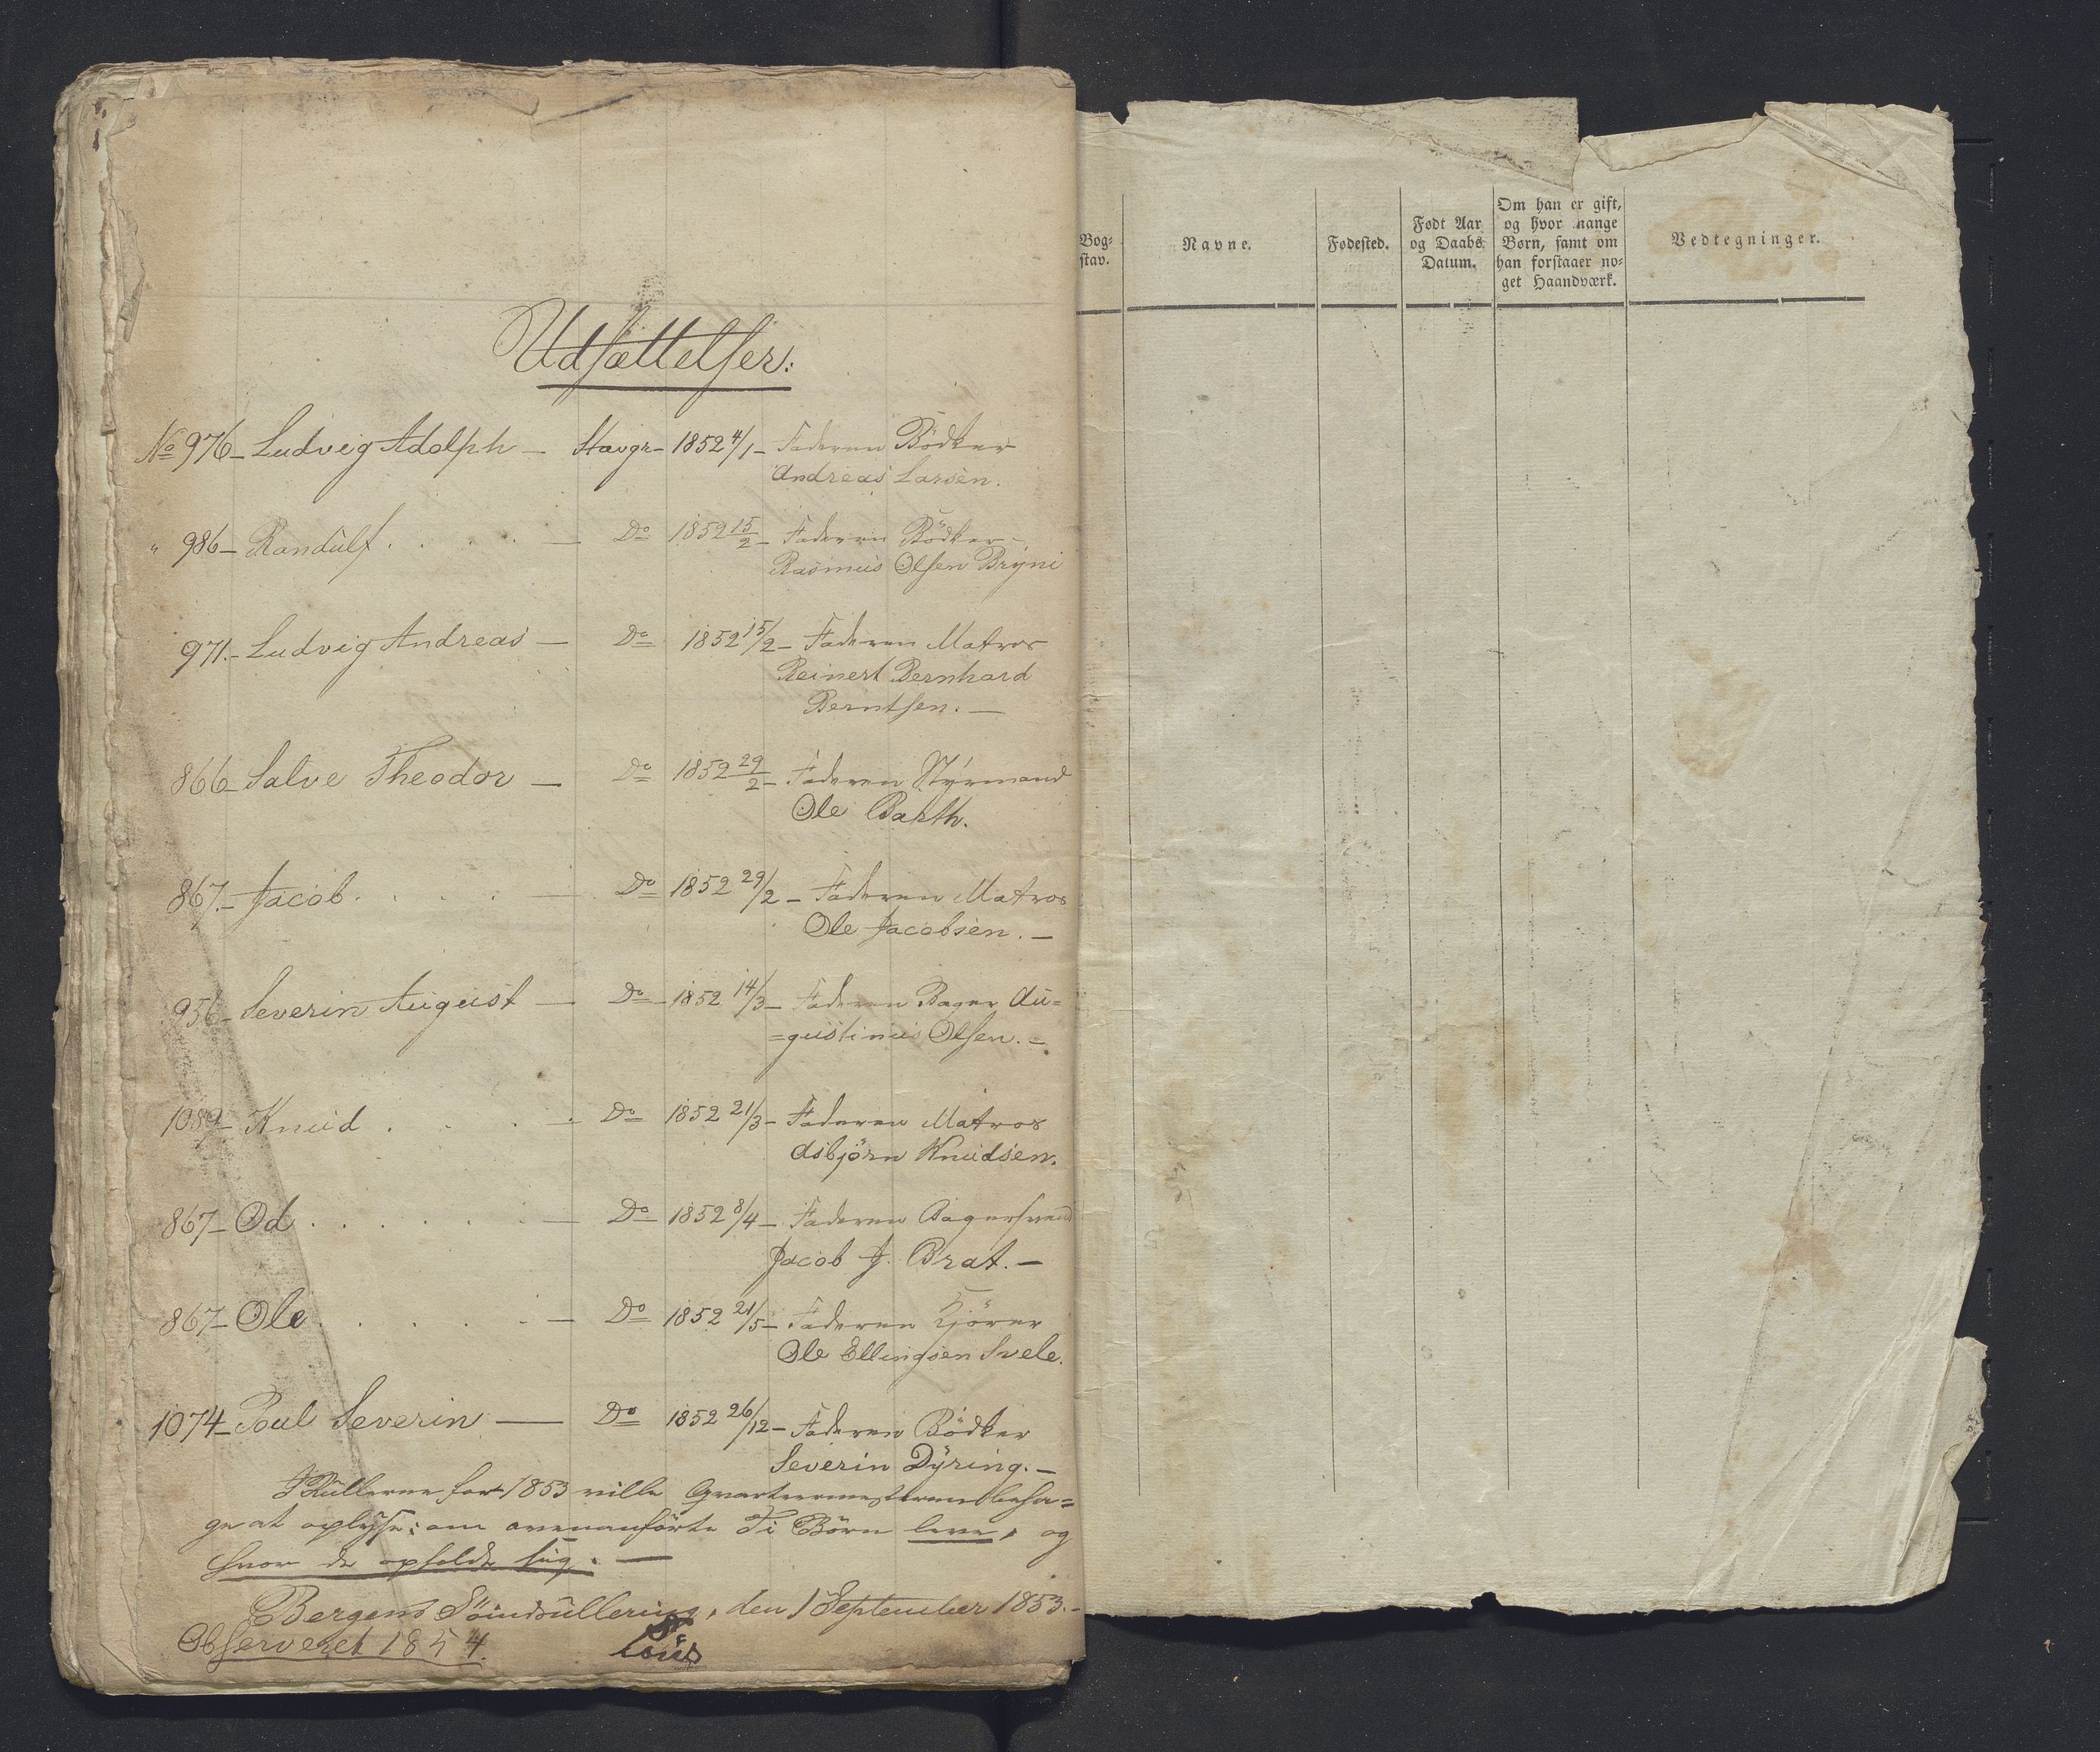 Udsættelser:
No 976 - Ludvig Adolph - Stavgr - 1852 4/1 - Faderen Bödker
Andreas Larsen.
" 986 - Randulf . . . . - Do 1852 15/2 - Faderen Bödker -
Rasmus Olsen Bryni
971. - Ludvig Andreas - Do 1852 15/2 - Faderen Matros
Reinert Bernhard
Berntsen. -
866 - Salve Theodor - Do 1852 29/2 - Faderen Styrmand
Ole Barth.
867. - Jacob . . . . - Do 1852 29/2 - Faderen Matros
Ole Jacobsen. -
956 - Severin August - Do - 1852 14/3 - Faderen Bager Au=
=gustinus Olsen. -
1089 - Knud . . . . - Do 1852 21/3 - Faderen Matros
Asbjörn Knudsen.
867 - Od . . . . . . - Do 1852 8/4 - Faderen Bagersvend
Jacob J. Brat. -
867 - Ole . . . . . - Do 1852 21/5 - Faderen Kjörer
Ole Ellingsen Svele.
1074 - Poul Severin - Do 1852 26/12 - Faderen Bödker
Severin Dyring. -
I Rullerne for 1853 ville Qvarteermesteren beha=
ge at oplyse: om ovenanförte Ti Börn leve, og
hvor de opholde sig. -
Bergens Söindrullering, den 1 September 1853. -
Observeret 1854.
Bog=
stav.
Navne.
Fødested.
Født Aar
og Daabs
Datum.
Om han er gift,
og hvor mange
Børn, samt om
han forstaaer no=
get Haandværk.
Vedtegninger.